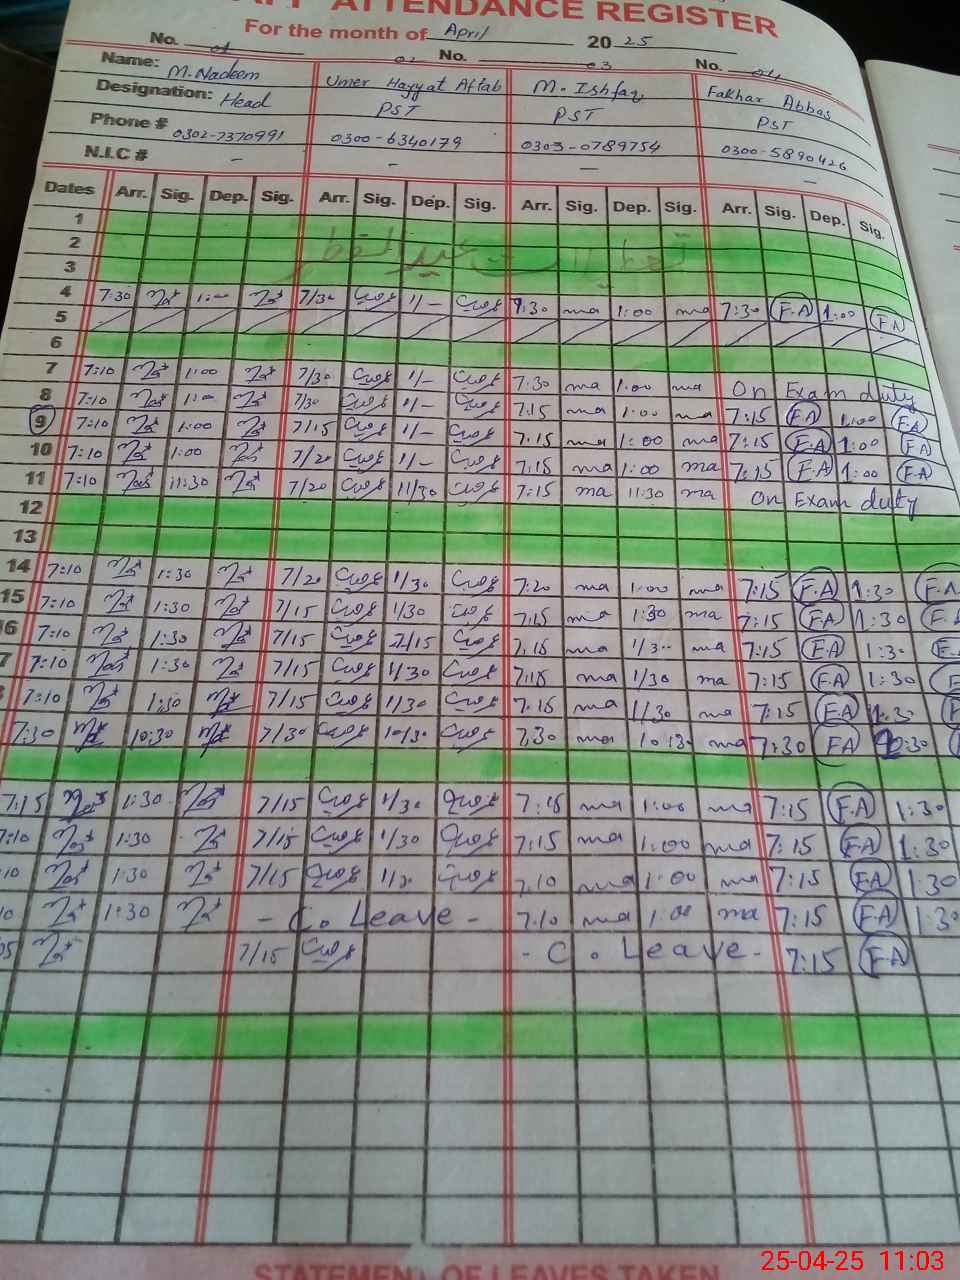 ATTENDANCE REGISTER
For the month of April 2025
No. 01 02 No. 03 No. 04
Name: M. Nadeem Umer Hayyat Aftab M. Ishfaq Fakhar Abbas
Designation: Head PST PST PST
Phone # 0302-7370991 0300-6340179 0303-0789754 0300-5890426
N.I.C # - - - -
Dates Arr. Sig. Dep. Sig. Arr. Sig. Dep. Sig. Arr. Sig. Dep. Sig. Arr. Sig. Dep. Sig.
1
2 تعطیلات عیدالفطر
3
4 7:30 1:00 7/30 1/- 7:30 ma 1:00 ma 7:30 F.A 1:00 F.A
5
6
7 7:10 1:00 7/30 1/- 7:30 ma 1:00 ma On Exam duty
8 7:10 1:00 7/30 1/- 7:15 ma 1:00 ma 7:15 F.A 1:00 F.A
9 7:10 1:00 7/15 1/- 7:15 ma 1:00 ma 7:15 F.A 1:00 F.A
10 7:10 1:00 7/20 1/- 7:15 ma 1:00 ma 7:15 F.A 1:00 F.A
11 7:10 11:30 7/20 11/30 7:15 ma 11:30 ma On Exam duty
12
13
14 7:10 1:30 7/20 1/30 7:20 ma 1:00 ma 7:15 F.A 1:30 F.A
15 7:10 1:30 7/15 1/30 7:15 ma 1:30 ma 7:15 F.A 1:30 F.
7:10 1:30 7/15 7:15 ma 1/30 ma 7:15 F.A 1:30
7:10 1:30 7/15 1/30 7:15 ma 1/30 ma 7:15 F.A 1:30
7:10 1:30 7/15 1/30 7:15 ma 1/30 ma 7:15 F.A 1:30
7:30 10:30 7/30 10/30 7:30 ma 10:30 ma 7:30 FA 10:30
7:15 1:30 7/15 1/30 7:15 ma 1:00 ma 7:15 F.A 1:30
7:10 1:30 7/15 1/30 7:15 ma 1:00 ma 7:15 F.A 1:30
10 1:30 7/15 7:10 ma 1:00 ma 7:15 F.A 1:30
10 1:30 - C. Leave - 7:10 ma 1:00 ma 7:15 F.A 1:30
05 7/15 - C. Leave - 7:15 F.A
STATEMENT OF LEAVES TAKEN
25-04-25 11:03